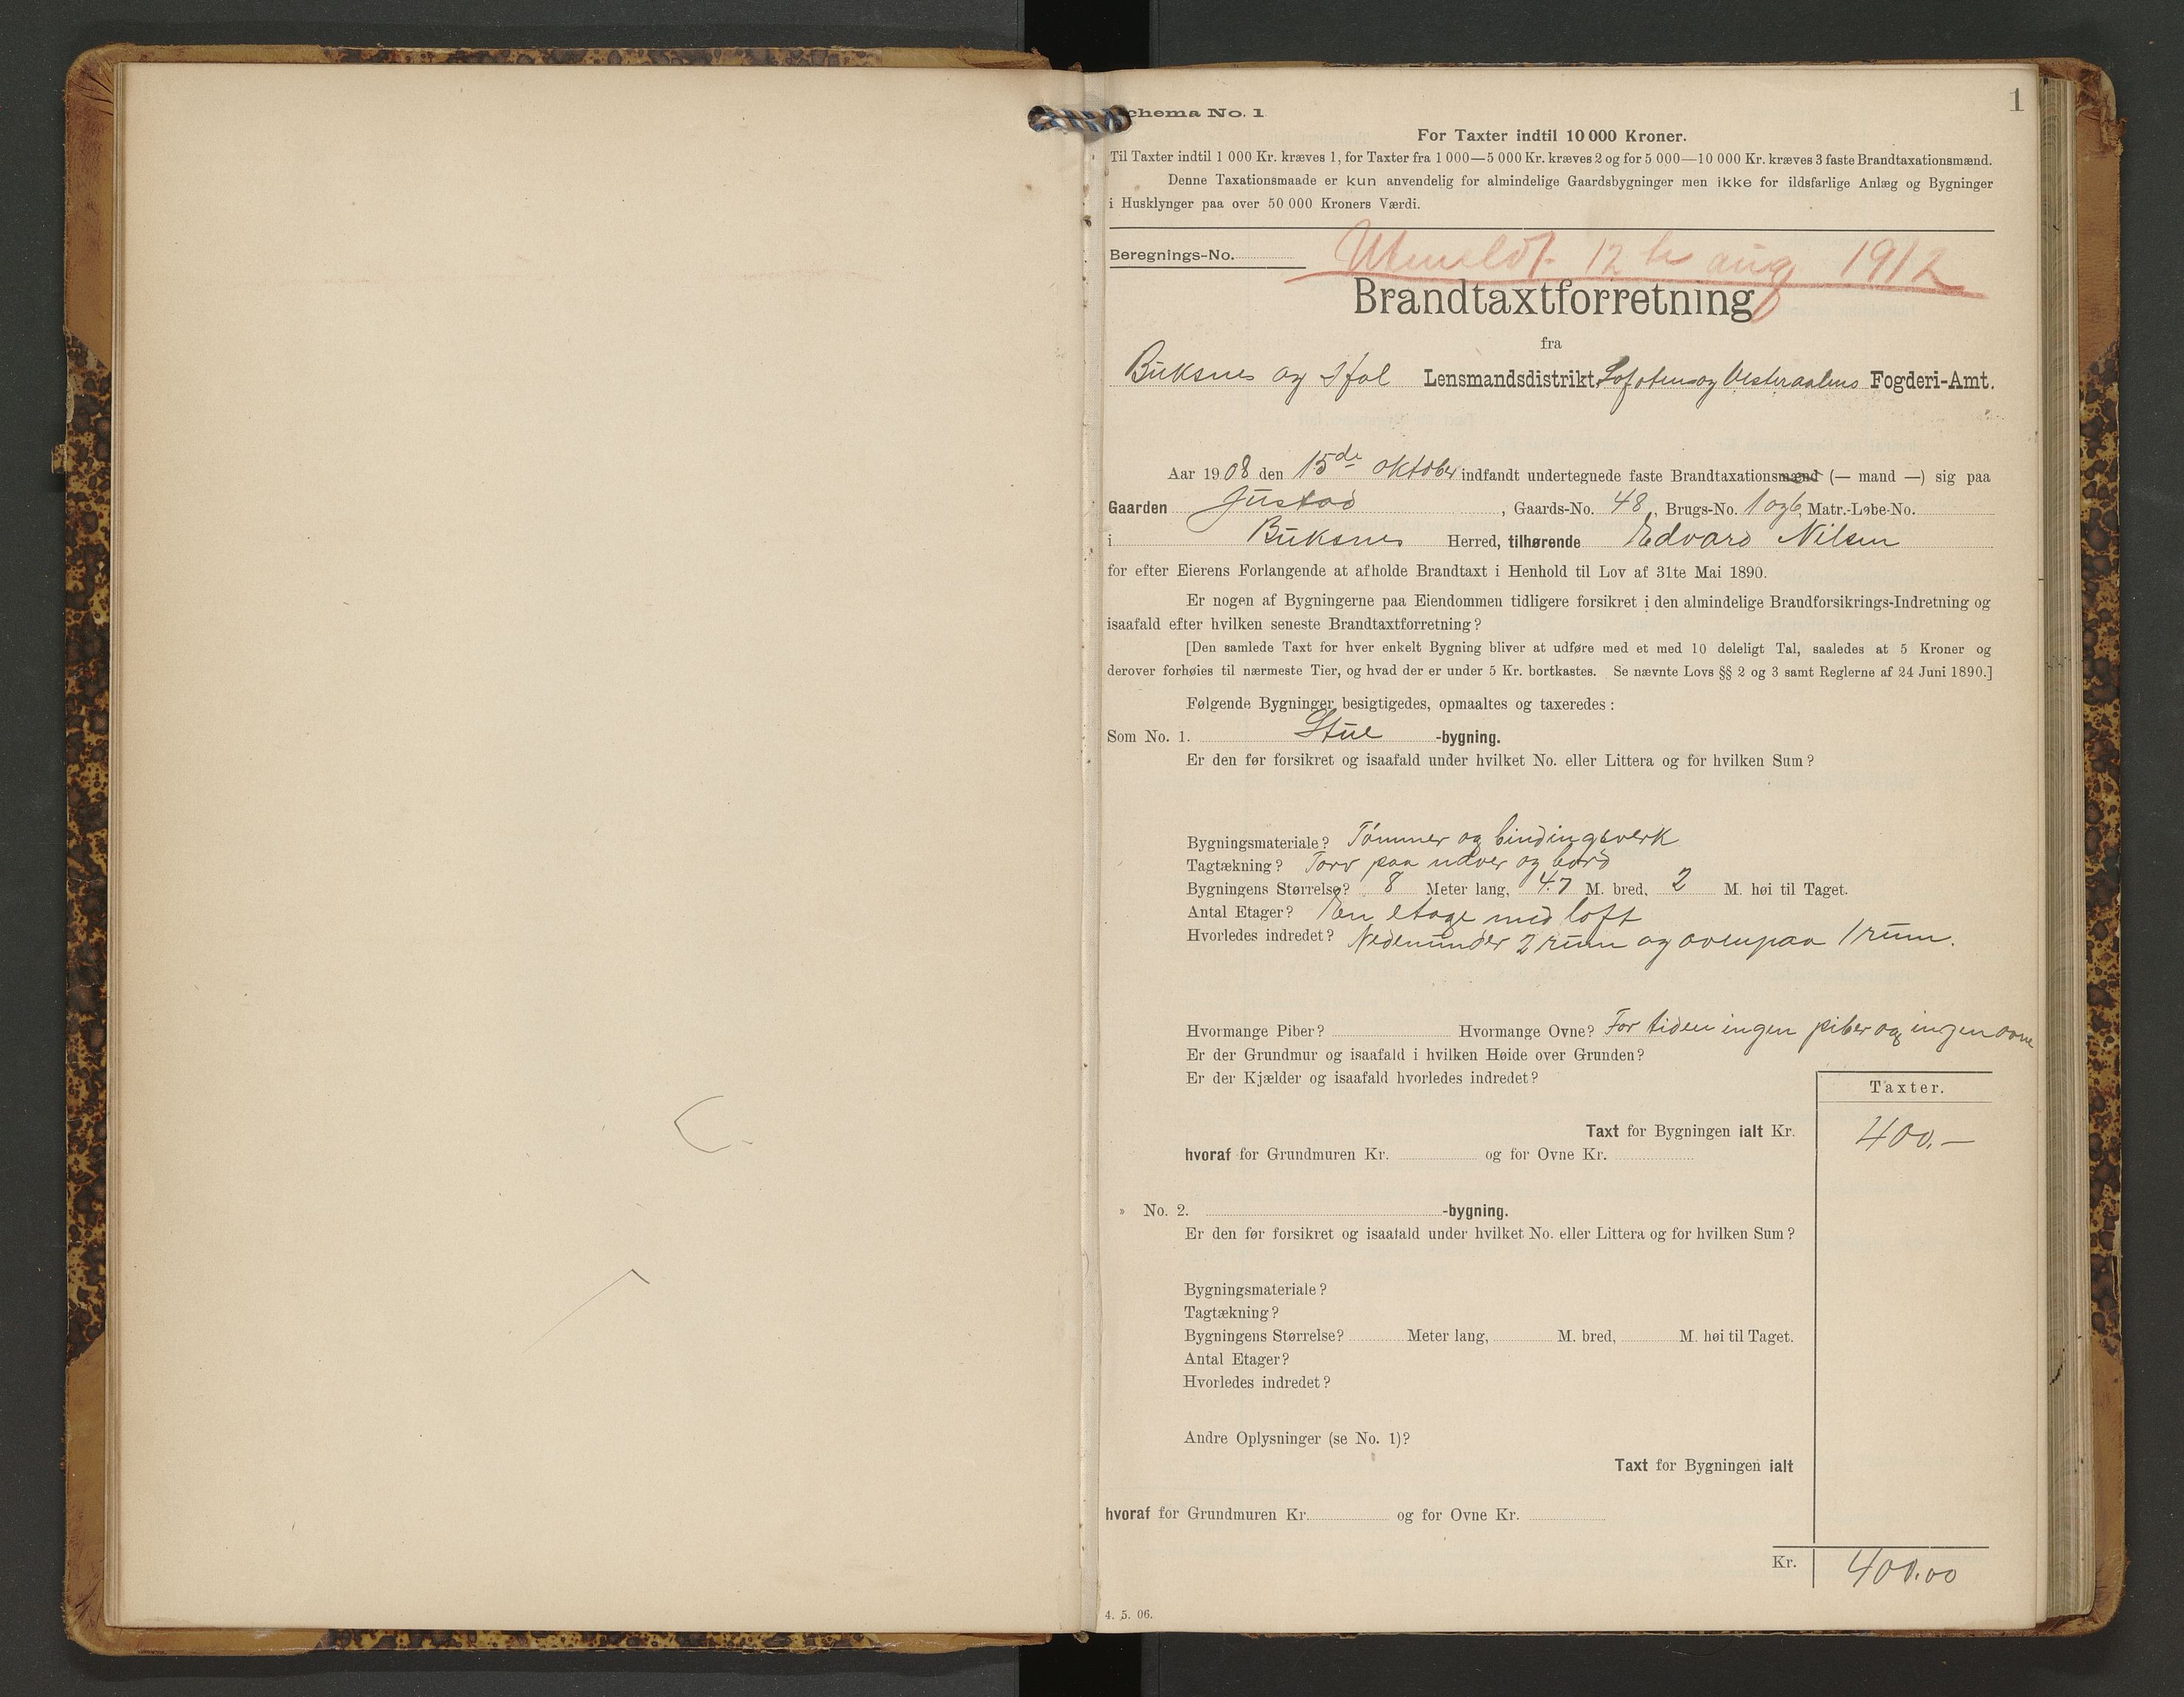 1
Schema No. 1
For Taxter indtil 10 000 Kroner.
Til Taxter indtil 1 000 Kr. kræves 1, for Taxter fra 1 000—5 000 Kr. kræves 2 og for 5 000—10 000 Kr. kræves 3 faste Brandtaxationsmænd.
Denne Taxationsmaade er kun anvendelig for almindelige Gaardsbygninger men ikke for ildsfarlige Anlæg og Bygninger
i Husklynger paa over 50 000 Kroners Værdi.
Beregnings-No. Utmeldt 12te aug 1912
Brandtaxtforretning
fra
Buksnes og Hol Lensmandsdistrikt, Lofoten og Vesteraalens Fogderi-Amt.
Aar 1908 den 15de oktober indfandt undertegnede faste Brandtaxationsmænd (— mand —) sig paa
Gaarden Gustad, Gaards-No. 48, Brugs-No. 1 og 6, Matr.-Løbe-No.
i Buksnes Herred, tilhørende Edvard Nilsen
for efter Eierens Forlangende at afholde Brandtaxt i Henhold til Lov af 31te Mai 1890.
Er nogen af Bygningerne paa Eiendommen tidligere forsikret i den almindelige Brandforsikrings-Indretning og
isaafald efter hvilken seneste Brandtaxtforretning?
[Den samlede Taxt for hver enkelt Bygning bliver at udføre med et med 10 deleligt Tal, saaledes at 5 Kroner og
derover forhøies til nærmeste Tier, og hvad der er under 5 Kr. bortkastes. Se nævnte Lovs §§ 2 og 3 samt Reglerne af 24 Juni 1890.]
Følgende Bygninger besigtigedes, opmaaltes og taxeredes:
Som No. 1. Stue -bygning.
Er den før forsikret og isaafald under hvilket No. eller Littera og for hvilken Sum?
Bygningsmateriale? Tömmer og bindingsverk
Tagtækning? Torv paa næver og bord
Bygningens Størrelse? 8 Meter lang, 4.7 M. bred, 2 M. høi til Taget.
Antal Etager? En etage med loft
Hvorledes indredet? Nedenunder 2 rum og ovenpaa 1 rum.
Hvormange Piber? Hvormange Ovne? For tiden ingen piber og ingen ovne
Er der Grundmur og isaafald i hvilken Høide over Grunden?
Er der Kjælder og isaafald hvorledes indredet?
Taxter.
Taxt for Bygningen ialt Kr. 400.—
hvoraf for Grundmuren Kr. og for Ovne Kr.
» No. 2. -bygning.
Er den før forsikret og isaafald under hvilket No. eller Littera og for hvilken Sum?
Bygningsmateriale?
Tagtækning?
Bygningens Størrelse? Meter lang, M. bred, M. høi til Taget.
Antal Etager?
Hvorledes indredet?
Andre Oplysninger (se No. 1)?
Taxt for Bygningen ialt
hvoraf for Grundmuren Kr. og for Ovne Kr.
Kr. 400.00
4. 5. 06.